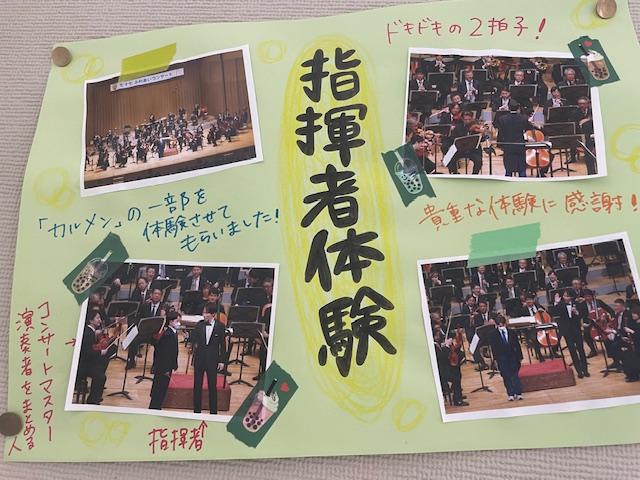 指揮者体験
ドキドキの2拍子!
「カルメン」の一部を
体験させて
もらいました!
貴重な体験に感謝!
コンサートマスター
演奏者をまとめる人
指揮者